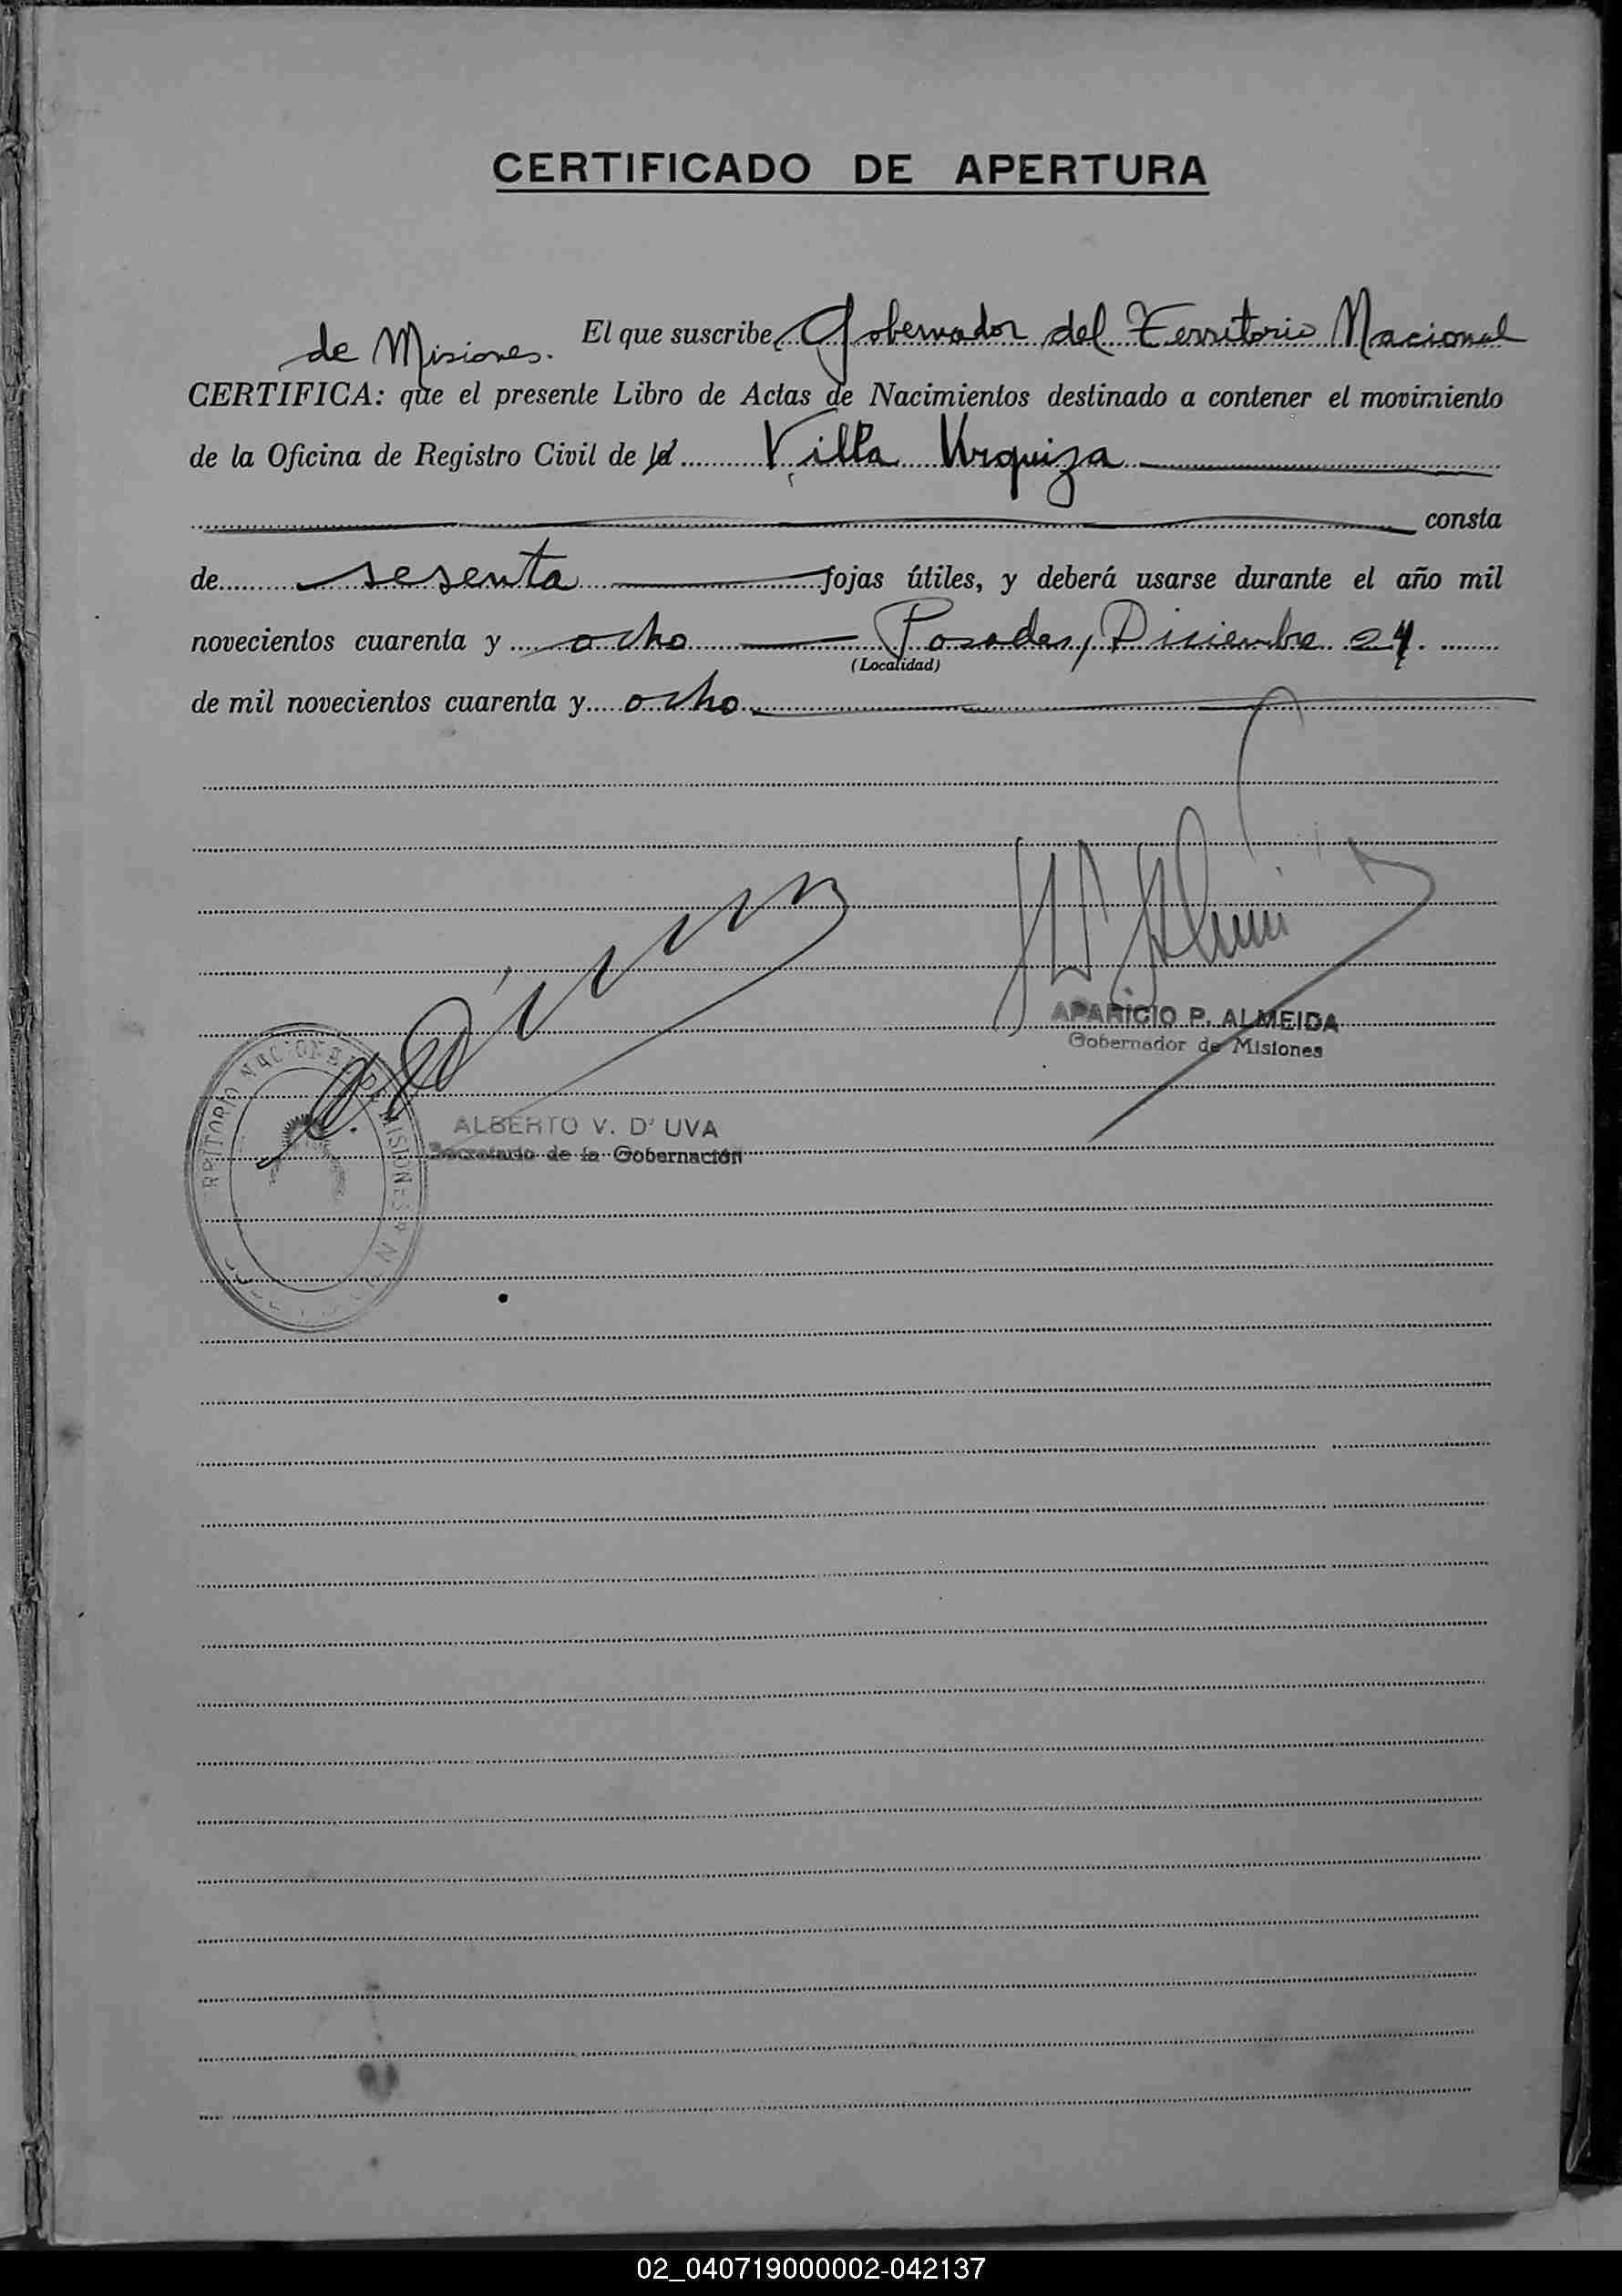 CERTIFICADO DE APERTURA
El que suscribe Gobernador del Territorio Nacional
de Misiones.
CERTIFICA: que el presente Libro de Actas de Nacimientos destinado a contener el movimiento
de la Oficina de Registro Civil de Villa Urquiza
consta
de sesenta fojas útiles, y deberá usarse durante el año mil
novecientos cuarenta y ocho Posadas, Diciembre 24.
(Localidad)
de mil novecientos cuarenta y ocho
APARICIO P. ALMEIDA
Gobernador de Misiones
ALBERTO V. D' UVA
Secretario de la Gobernación
RRITORIO NACIONAL DE MISIONES
02_040719000002-042137